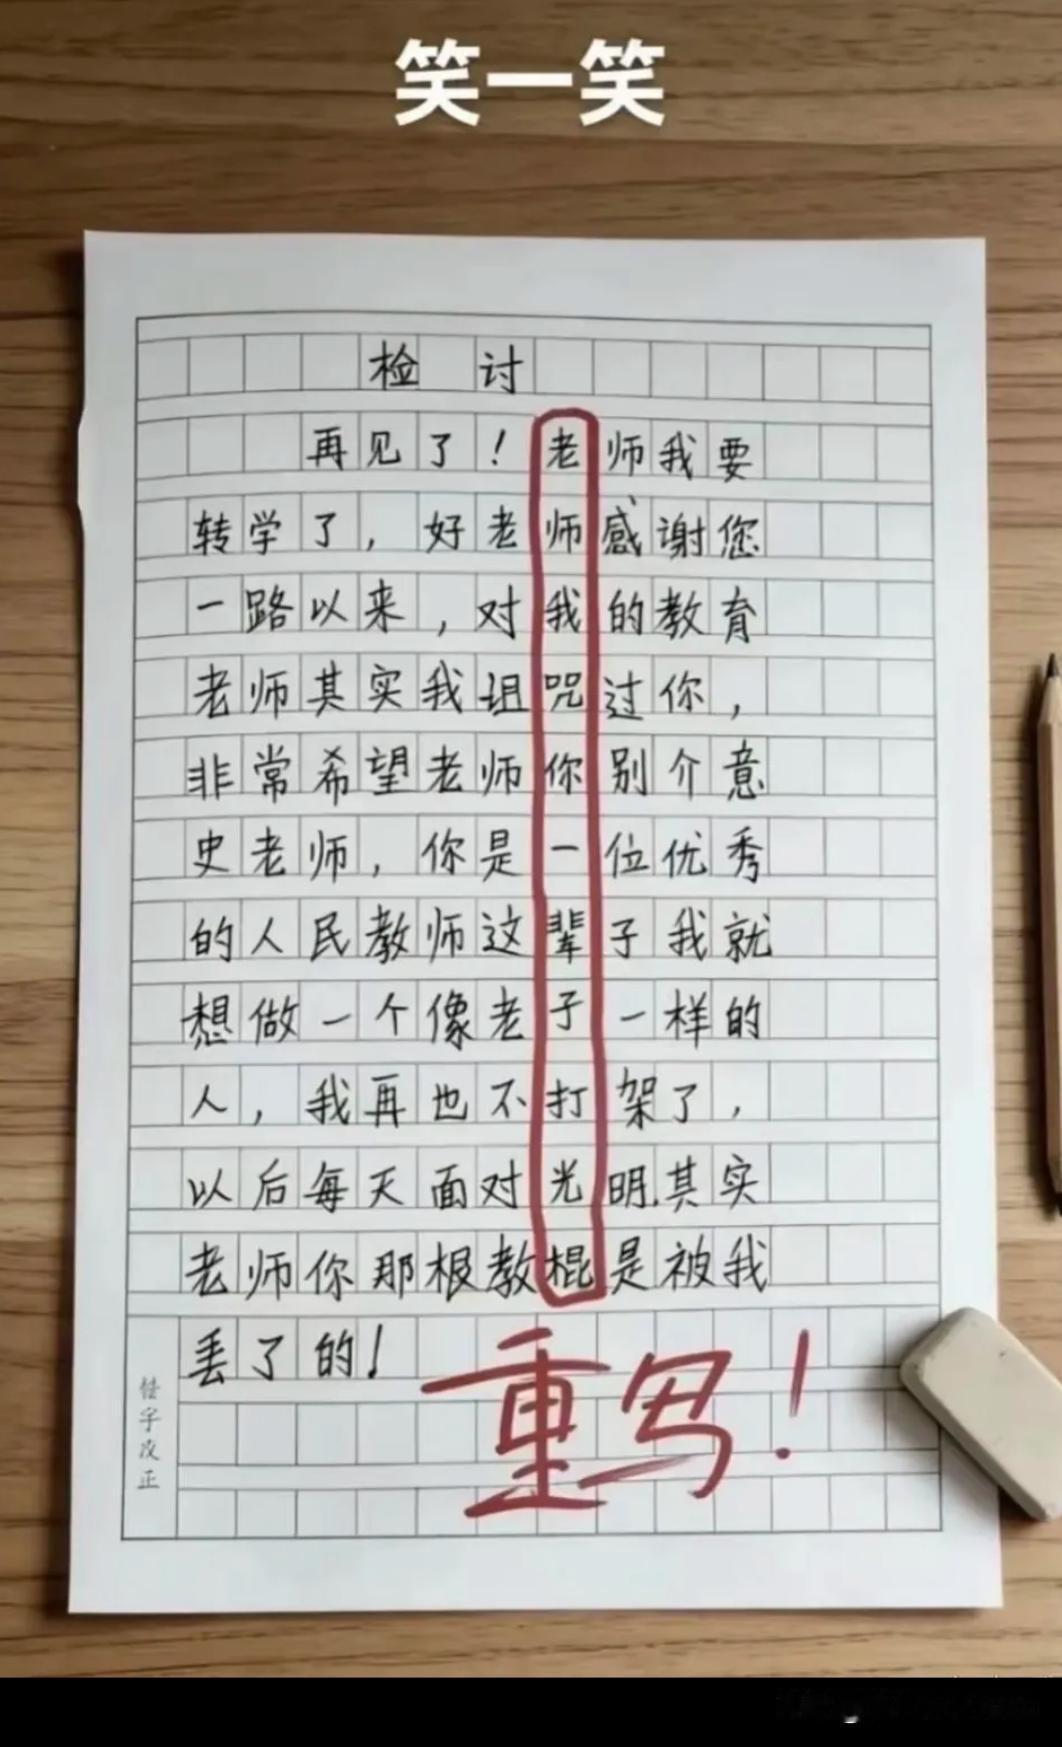 笑一笑
检讨
再见了！老师我要
转学了，好老师感谢您
一路以来，对我的教育
老师其实我诅咒过你，
非常希望老师你别介意
史老师，你是一位优秀
的人民教师这辈子我就
想做一个像老子一样的
人，我再也不打架了，
以后每天面对光明.其实
老师你那根教棍是被我
丢了的！
重写！